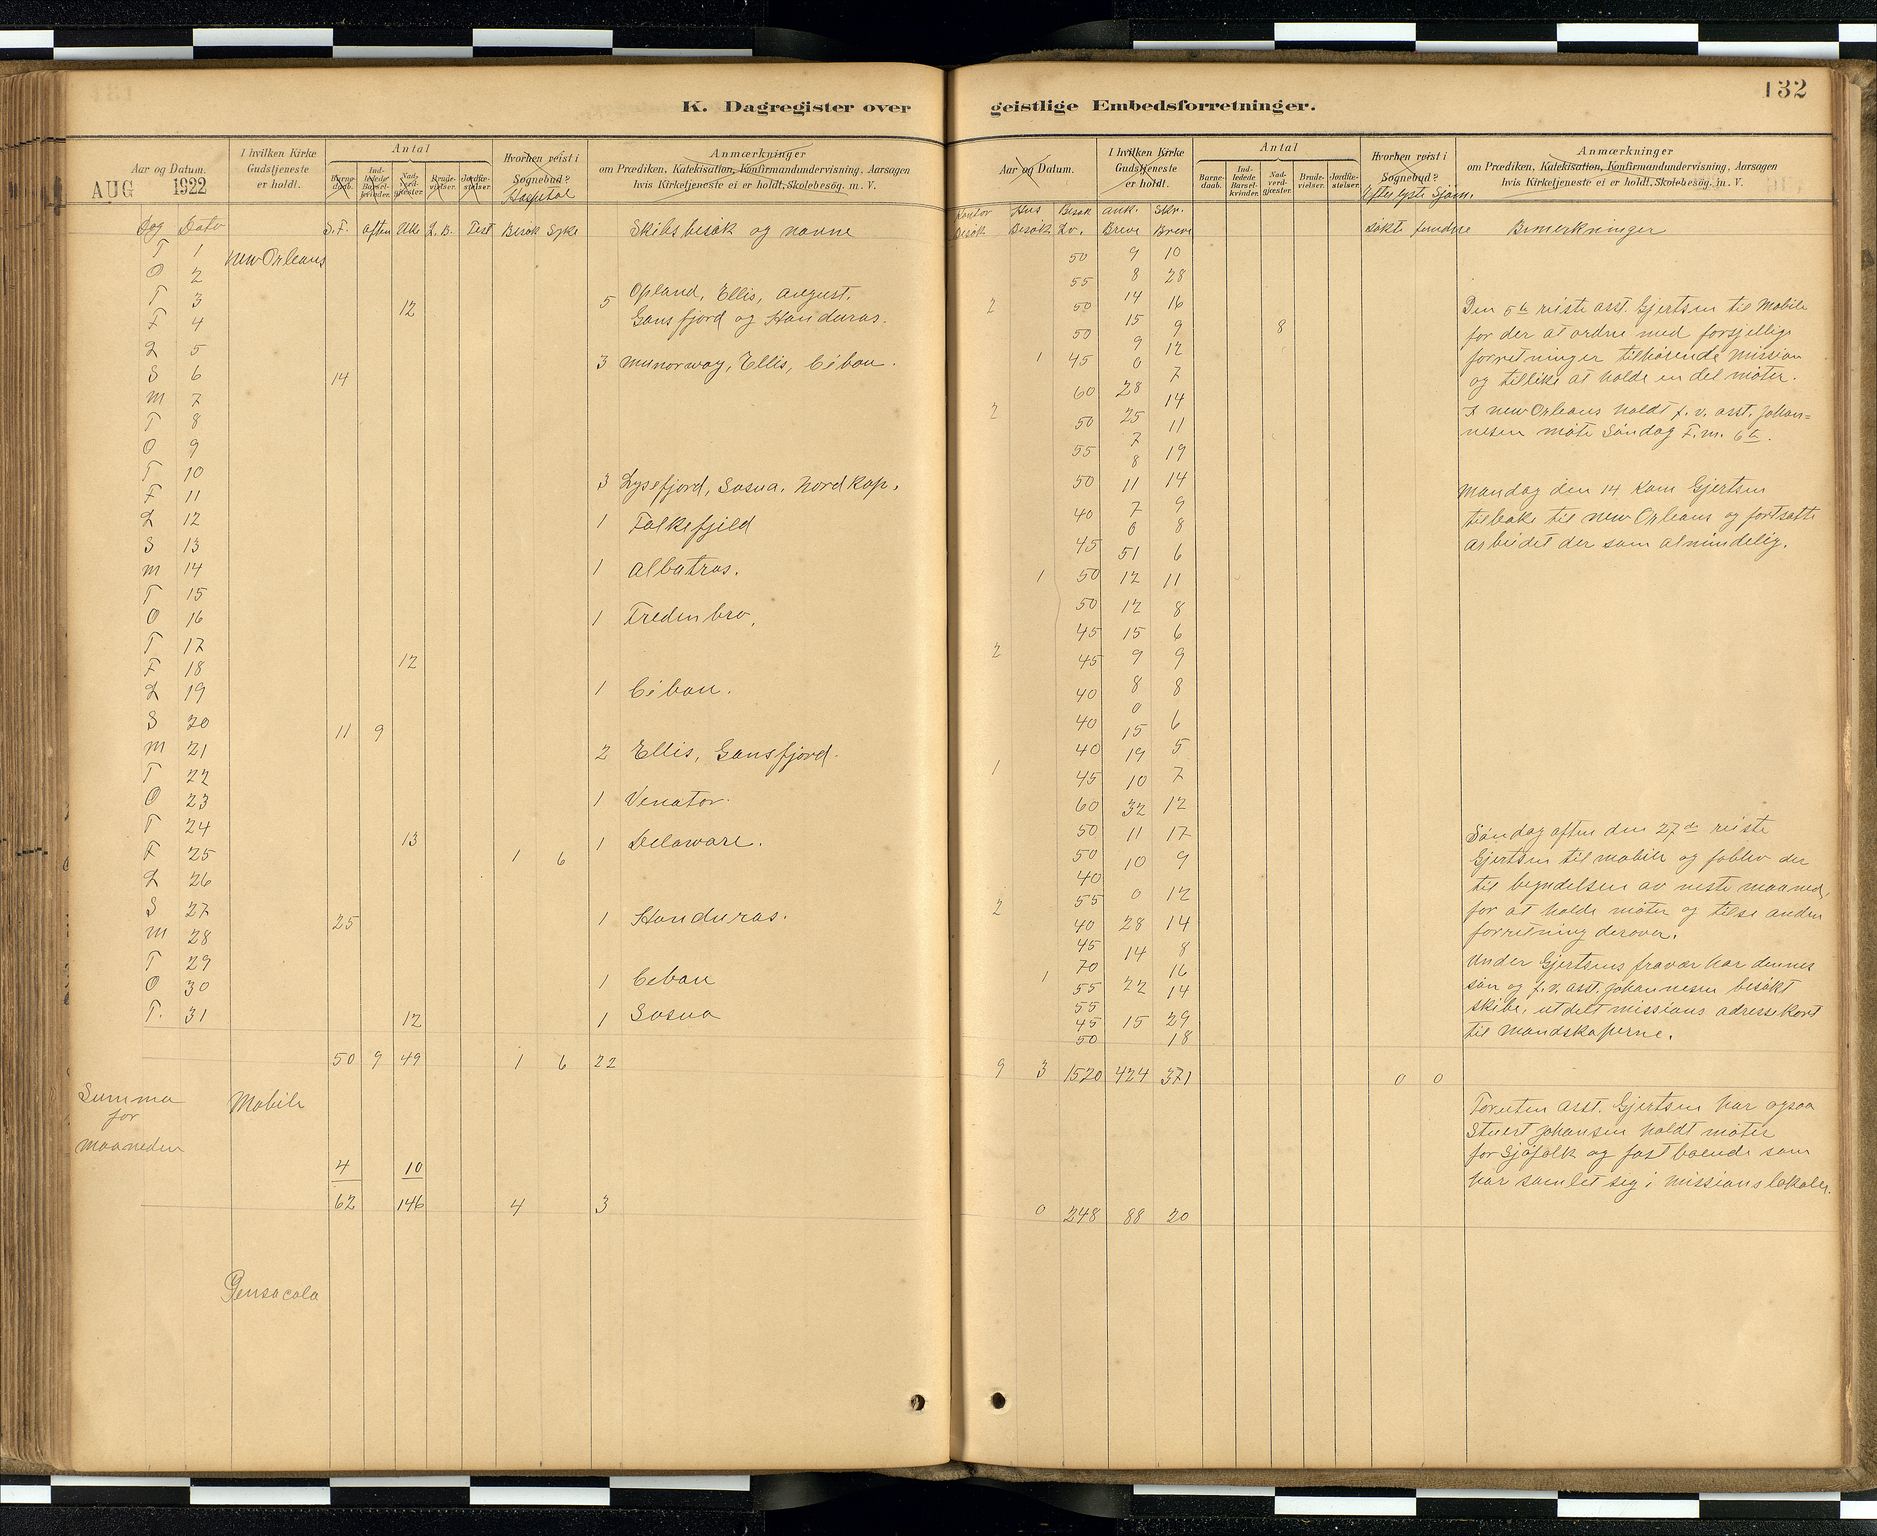 K. Dagregister over
Aar og Datum.
AUG 1922
I hvilken Kirke
Gudstjeneste
er holdt.
Antal
Barne-
daab.
Ind-
ledede
Barsel-
kvinder.
Nad-
verd-
gjæster.
Brude-
vielser.
Jordfæ-
stelser.
Hvorhen reist i
Sognebud?
Hospital
Anmærkninger
om Prædiken, Katekisation, Konfirmandundervisning, Aarsagen
hvis Kirketjeneste ei er holdt, Skolebesøg. m. V.
Dag Dato S. F. aften Uke L. B. Fest Besøk Syke Skibsbesøk og navne
T 1 New Orleans
O 2
T 3 12 5 Opland, Ellis, August,
F 4 Gansfjord og Honduras.
L 5 3 Munorway, Ellis, Ceban.
S 6 14
M 7
T 8
O 9
T 10 3 Lysefjord, Sosua, Nordkap.
F 11
L 12 1 Falkefjeld
S 13
M 14 1 Albatros.
T 15
O 16 1 Fredenbro,
T 17 12
F 18
L 19 1 Ceban.
S 20 11 9
M 21 2 Ellis, Gansfjord.
T 22
O 23 1 Venator.
T 24 13 1 Delaware.
F 25 1 6
L 26
S 27 25 1 Honduras.
M 28
T 29
O 30 1 Ceban
T. 31 12 1 Sosua
50 9 49 1 6 22
Summa Mobile
for
Maaneden
4 10
62 146 4 3
Pensacola
132
geistlige Embedsforretninger.
Aar og Datum.
I hvilken Kirke
Gudstjeneste
er holdt.
Antal
Barne-
daab.
Ind-
ledede
Barsel-
kvinder.
Nad-
verd-
gjæster.
Brude-
vielser.
Jordfæ-
stelser.
Hvorhen reist i
Sognebud?
Efterlyste Sjøm.
Anmærkninger
om Prædiken, Katekisation, Konfirmandundervisning, Aarsagen
hvis Kirketjeneste ei er holdt, Skolebesøg. m. V.
Kontor Hus Besøk Ank. Skr.
Besøk Besøk Lv. Breve Breve søkt fundne Bemerkninger
50 9 10
55 8 28
2 50 14 16
50 15 9 8
9 12
1 45 0
7
60 28
2 14
50 25 11
7
55 8 19
50 11 14
40 7 9
0 8
45 51 6
1 50 12 11
50 12 8
45 15 6
2 45 9 9
40 8 8
0
40 15 6
40 19 5
1 45 10 7
60 32 12
50 11 17
50 10 9
40
55 0 12
2 40 28 14
45 14 8
70 16
1 55 22 14
55
45 15 29
50 18
9 3 1520 424 371 0 0
0 248 88 20
Den 5te reiste asst. Gjertsen til Mobile
for der at ordne med forsjellige
forretninger tilhørende mission
og tillike at holde en del møter.
I New Orleans holdt f. v. asst. Johan=
nesen møte Søndag F. m. 6te.
Mandag den 14 kom Gjertsen
tilbake til New Orleans og fortsatte
arbeidet der som almindelig.
Søndag aften den 27de reiste
Gjertsen til Mobile og foblev der
til begyndelsen av neste maaned,
for at holde møter og tilse anden
forretning derover.
Under Gjertsens fravær har dennes
søn og f. v. asst. Johannesen besøkt
skibe, utdelt missions adressekort
til mandskaperne.
Foruten asst. Gjertsen har ogsaa
Stuert Johansen holdt møter
for Sjøfolk og fastboende som
har samlet sig i missionslokalen.